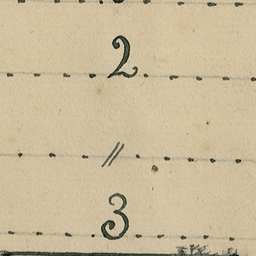 2
//
3